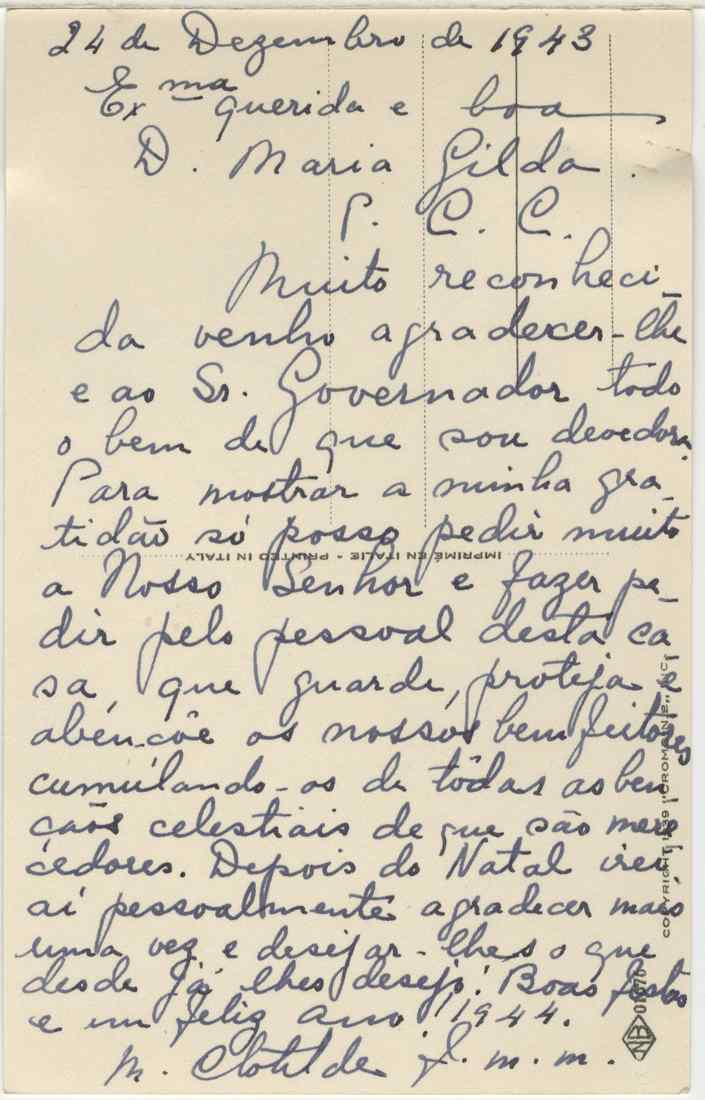 24 de Dezembro de 1943
Exma querida e boa
D. Maria Gilda.
P. C. C.
Muito reconheci_
da venho agradecer-lhe
e ao Sr. Governador todo
o bem de que sou devedora.
Para mostrar a minha gra_
tidão só posso pedir muito
IMPRIMÉ EN ITALIE - PRINTED IN ITALY
a Nosso Senhor e fazer pe_
dir pelo pessoal desta ca_
sa, que guarde, proteja e
abençôe os nossos bemfeitores
cumulando-os de tôdas as ben_
çãos celestiais de que são mere_
cedores. Depois do Natal irei
aí pessoalmente agradecer mais
uma vez e desejar-lhes o que
desde já lhes desejo: Boas festas
e um feliz ano 1944.
M. Clotilde f. m. m.
COPYRIGHT 1939
NB